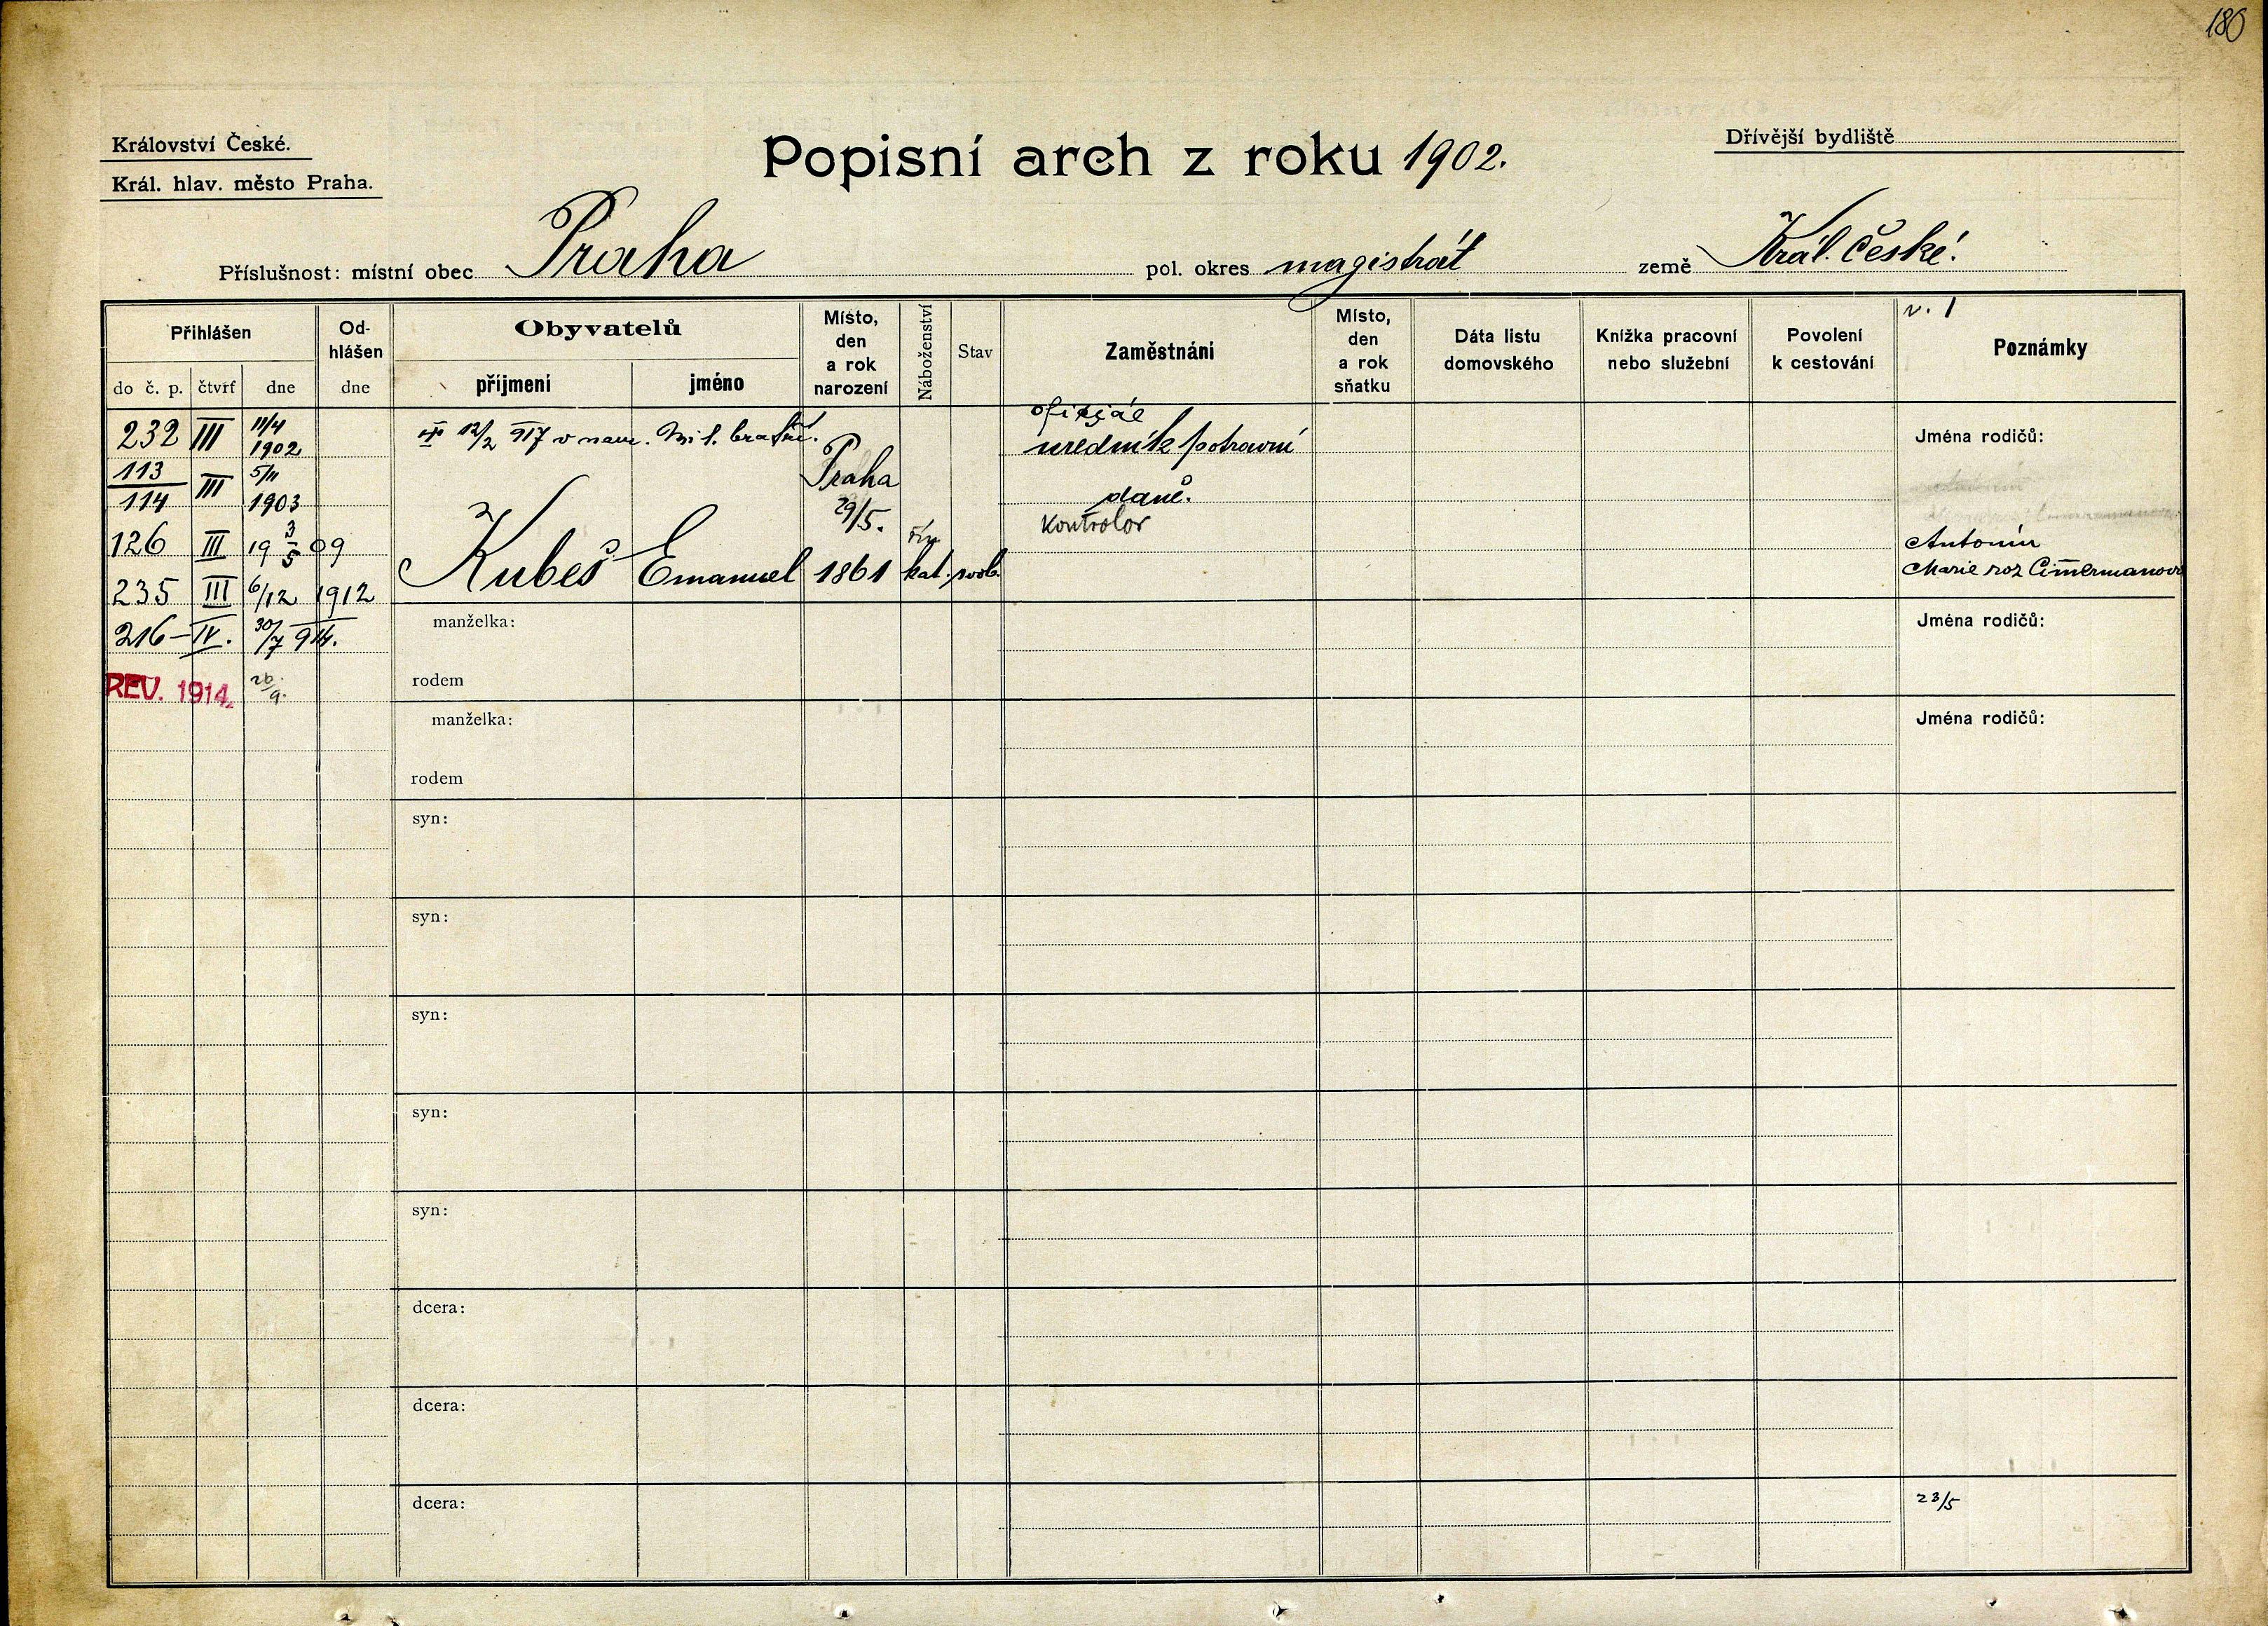 180
Království České.
Král. hlav. město Praha.
Popisní arch z roku 1902.
Dřívější bydliště
Příslušnost: místní obec Praha pol. okres magistrát země Král. České.
Přihlášen
do č. p. čtvrť dne
Od-
hlášen
dne
Obyvatelů
příjmení jméno
Místo,
den
a rok
narození
Náboženství
Stav
Zaměstnání
Místo,
den
a rok
sňatku
Dáta listu
domovského
Knížka pracovní
nebo služební
Povolení
k cestování
v. 1
Poznámky
232 III 11/4
1902
113
114 III 5/11
1903
126 III 19 3/5 09
235 III 6/12 1912
216 – IV. 30/7 914.
REV. 1914. 26/9.
12/2 917 v nem. Mil. bratří.
Kubeš Emanuel
Praha
29/5.
1861
řím
kat. svob.
oficiál
uredník potravní
daně.
kontrolor
Jména rodičů:
Antonín
Marie roz Cimermanova
manželka:
rodem
Jména rodičů:
manželka:
rodem
Jména rodičů:
syn:
syn:
syn:
syn:
syn:
dcera:
dcera:
dcera:
23/5